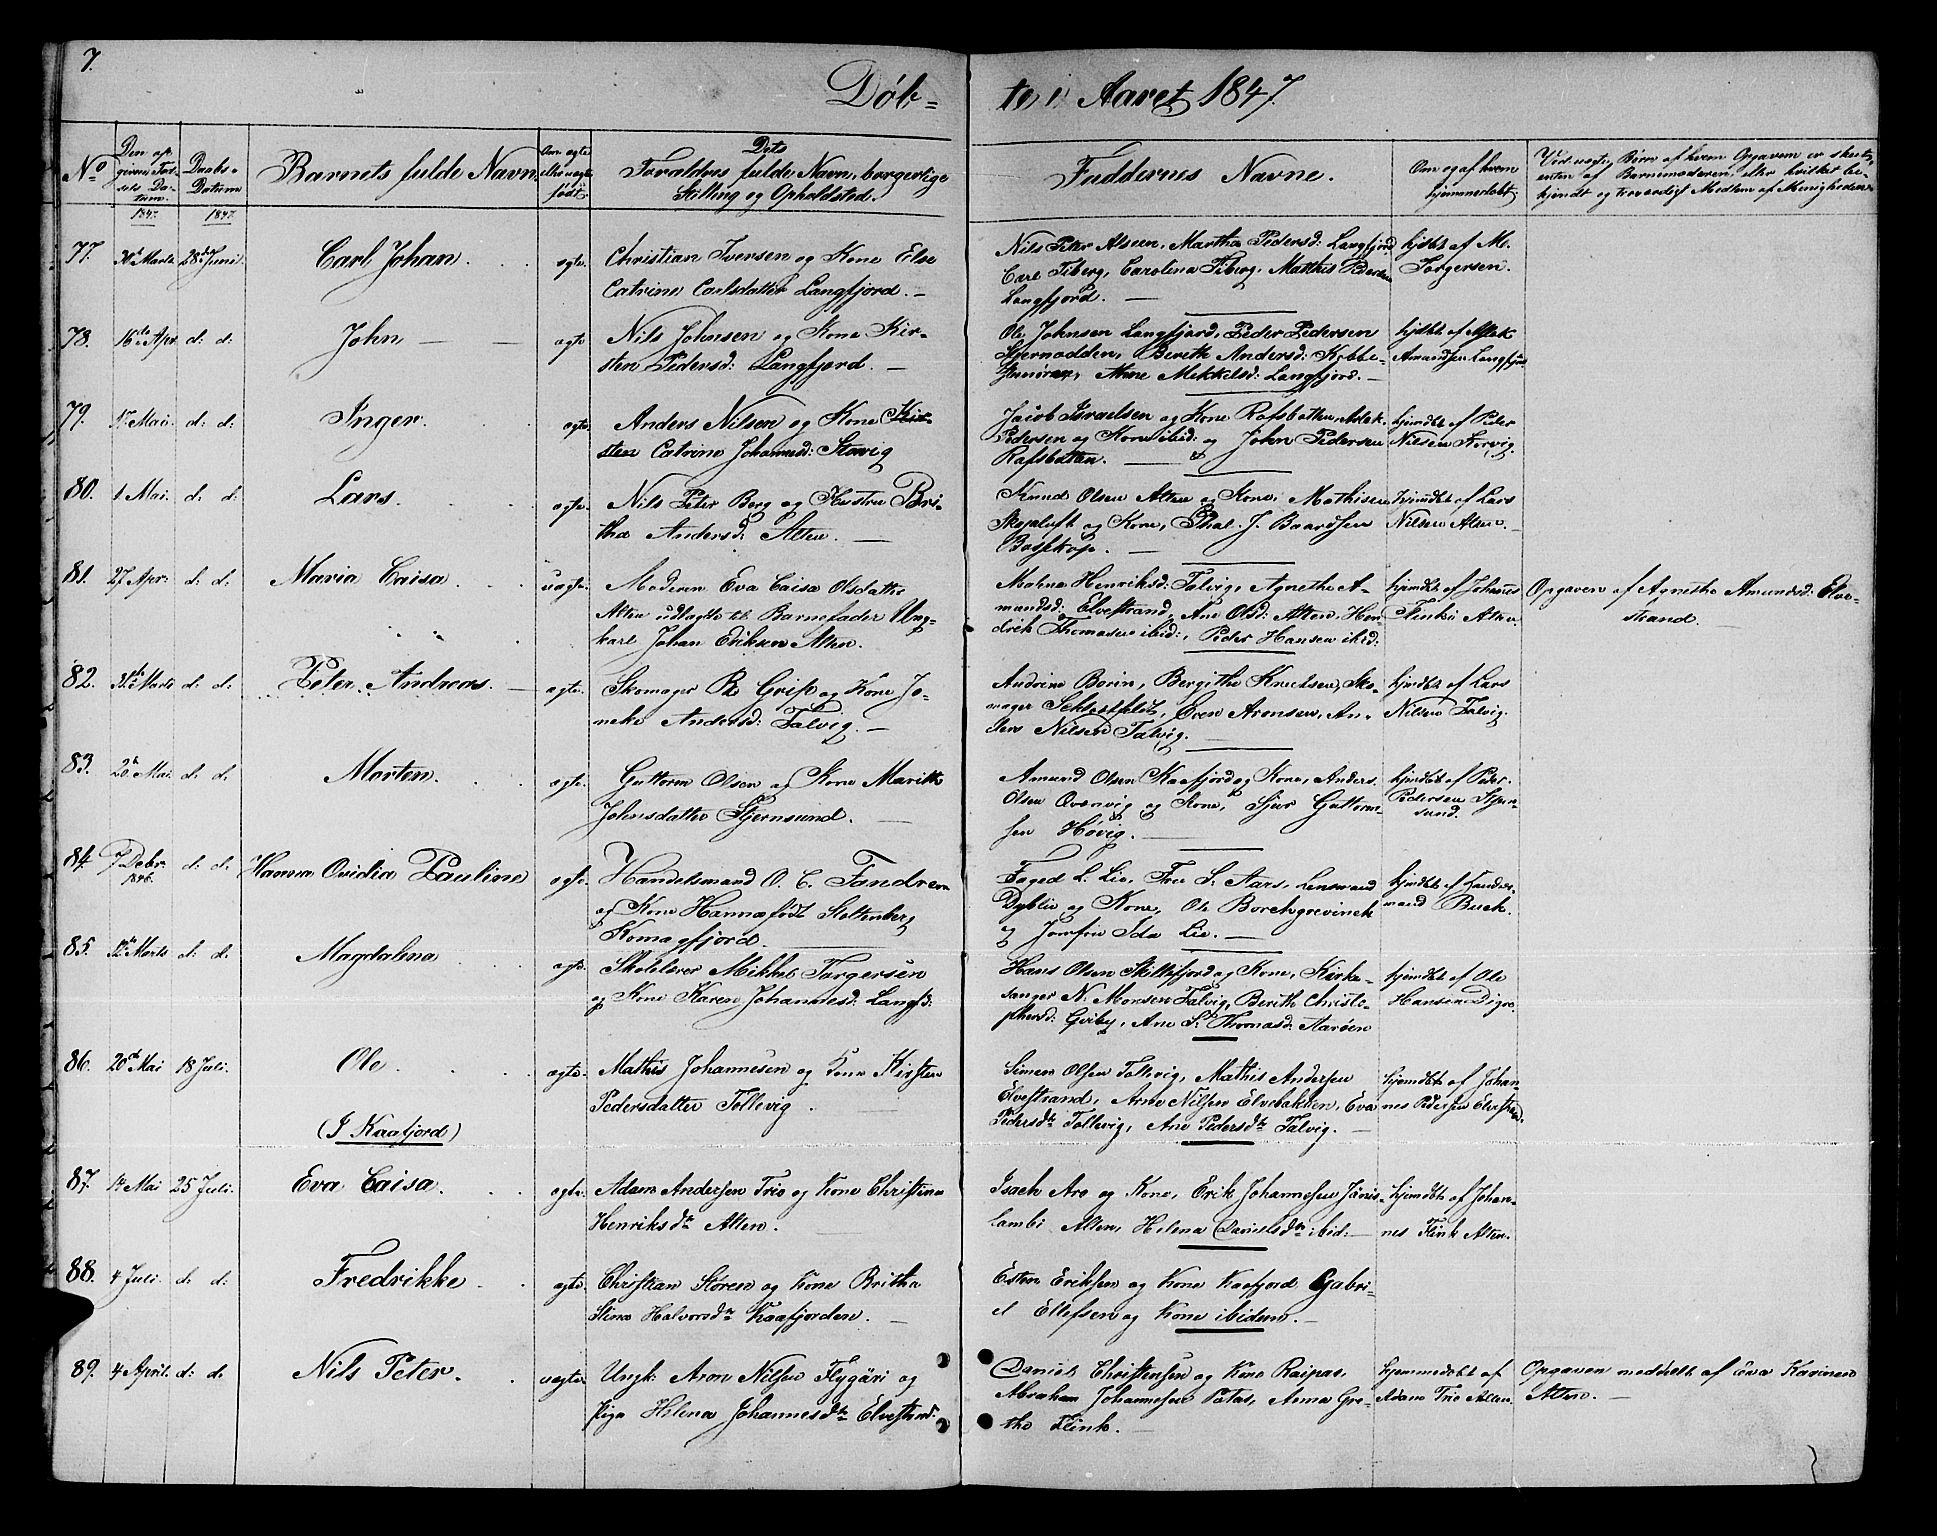 7.
Døb-
te i Aaret 1847.
No
Den op-
given Fød-
sels Da-
tum.
Daabs-
Datum
Barnets fulde Navn.
Om ægte
eller uægte
født.
Dets
Forældres fulde Navn, borgerlige
Stilling og Opholdsted.
Faddernes Navne.
Om og af hvem
hjemmedøbt
Ved uægte Børn af hvem Opgaven er skeet,
enten af Barnemoderen, eller hvilket be-
kjendt og troværdigt Medlem af Menigheden
1847.
1847.
77.
Marts
28de Juni.
Carl Johan.
ægte.
Christian Iversen og Kone Else
Catrine Carlsdatter Langfjord. —
Nils Peter Alseen, Martha Pedersd: Langfjord,
Carl Fiberg, Carolina Fiberg, Matthis
Langfjord. —
hjdbt af M.
Torgersen.
78.
16de Apr.
d: d:
John — —
ægte
Nils Johnsen og Kone Kir-
sten Pedersd: Langfjord. —
Ole Johnsen Langfjord, Peder Pedersen
Stjernodden, Berith Andersd:
Anne Mikkelsd: Langfjord. —
hjdbt af Aslak
Amundsen Langfjord
79.
17 Mai.
d: d:
Inger.
ægte
Anders Nilsen og Kone Kir-
sten Catrine Johannesd: Storvig
Jacob Israelsen og Kone Rafsbotten, Aslak
Pedersen og Kone ibid: og John Pedersen
Rafsbotten. —
hjemdbt af Peder
Nilsen Storvig.
80.
1 Mai.
d: d:
Lars.
ægte.
Nils Peter Berg og Hustru Bri-
tha Andersd: Alten. —
Knud Olsen Alten og Kone, Mathisen
Skopaluft og Kone, Thal. J. Baardsen
Bossekop. —
hjemdbt af Lars
Nilsen Alten. —
81.
27 Apr:
d: d:
Maria Caisa.
uægte.
Moderen Eva Caisa Olsdatter
Alten udlagde til Barnefader Ung-
karl Johan Eriksen Alten.
Malena Henriksd: Talvig, Agnethe A-
mundsd: Elvestrand, Ane Olsd: Alten, Hen-
drik Thomasen ibid:, Peder Hansen ibid:
hjemdbt af Johannes
Flinki Alten.
Opgaven af Agnethe Amundsd: Elve-
strand. —
82.
Marts
d: d:
Peter Andreas. —
ægte.
Skomager Grip og Kone Jo-
neke Andersd: Talvig. —
Andrine Borin, Bergithe Knutsen, Sko-
mager Sehlstedt, Oren Aronsen, An-
ders Nilsen Talvig.
hjemdbt af Lars
Nilsen Talvig.
83.
Mai.
d: d:
Morten.
ægte.
Guttorm Olsen og Kone Marith
Johnsdatter Stjernsund. —
Amund Olsen Kaafjord og Kone, Anders
Olsen Qvænvig og Kone, Sjur Guttorm-
sen Høvig. —
hjemdbt af Peder
Pedersen Stjern-
sund.
84.
7 Decbr.
1846.
d: d:
Hanna Ovidia Pauline
ægte.
Handelsmand O. C. Fandrem
og Kone Hanna født Stoltenberg
Komagfjord. —
Foged L. Lie, Fru S. Aars, Lensmand
Dyblie og Kone, Ole Borchgrevinck
og Jomfru Ida Lie. —
hjemdbt af Lands-
mand Buck.
85.
Marts
d: d:
Magdalena
ægte.
Skolelærer Mikkel Torgersen
og Kone Karen Johannesd: Langfd:
Hans Olsen Skillefjord og Kone, Kirke-
sanger N. Monsen Talvig, Berith Christo-
phersd: Qviby, Ane S. Thomasd: Aarøen
hjemdbt af Ole
Hansen Digre
86.
20de Mai
18 Juli.
Ole.
(I Kaafjord)
ægte.
Mathis Johannesen og Kone Kirsten
Pedersdatter Tollevig.
Simen Olsen Tollevig, Mathis Andersen
Elvestrand, Arne Nilsen Elvebakken, Eva
Pedersdtr Tollevig, Ane Pedersdtr Talvig. —
hjemdbt af Johan-
nes Pedersen Elvestrand.
87.
Mai
25 Juli.
Eva Caisa.
ægte.
Adam Andersen Trio og Kone Christina
Henriksdtr Alten. —
Isach Aro og Kone, Erik Johannesen Jänis-
lambi Alten, Helena Danielsdtr ibid: —
hjemdbt af Johan-
nes Flink Alten.
88.
4 Juli.
d: d:
Fredrikke.
ægte.
Christian Støren og Kone Britha
Stina Halvorsdtr Kaafjorden. —
Esten Eriksen og Kone Kaafjord Gabri-
el Ellefsen og Kone ibidem. —
89.
4 April.
d: d:
Nils Peter.
uægte.
Ungk: Aron Nilsen Flygäri og
Pige Helena Johannesdtr Elvestrand.
Daniel Christensen og Kone Raipas,
Abraham Johannesen Patas, Anna Gre-
the Flink. —
hjemmedøbt af
Adam Trio Alten.
Opgaven meddelt af Eva Karinen
Alten. —